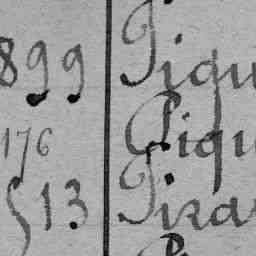 899 Piqu
176 Piqu
513 Pisa